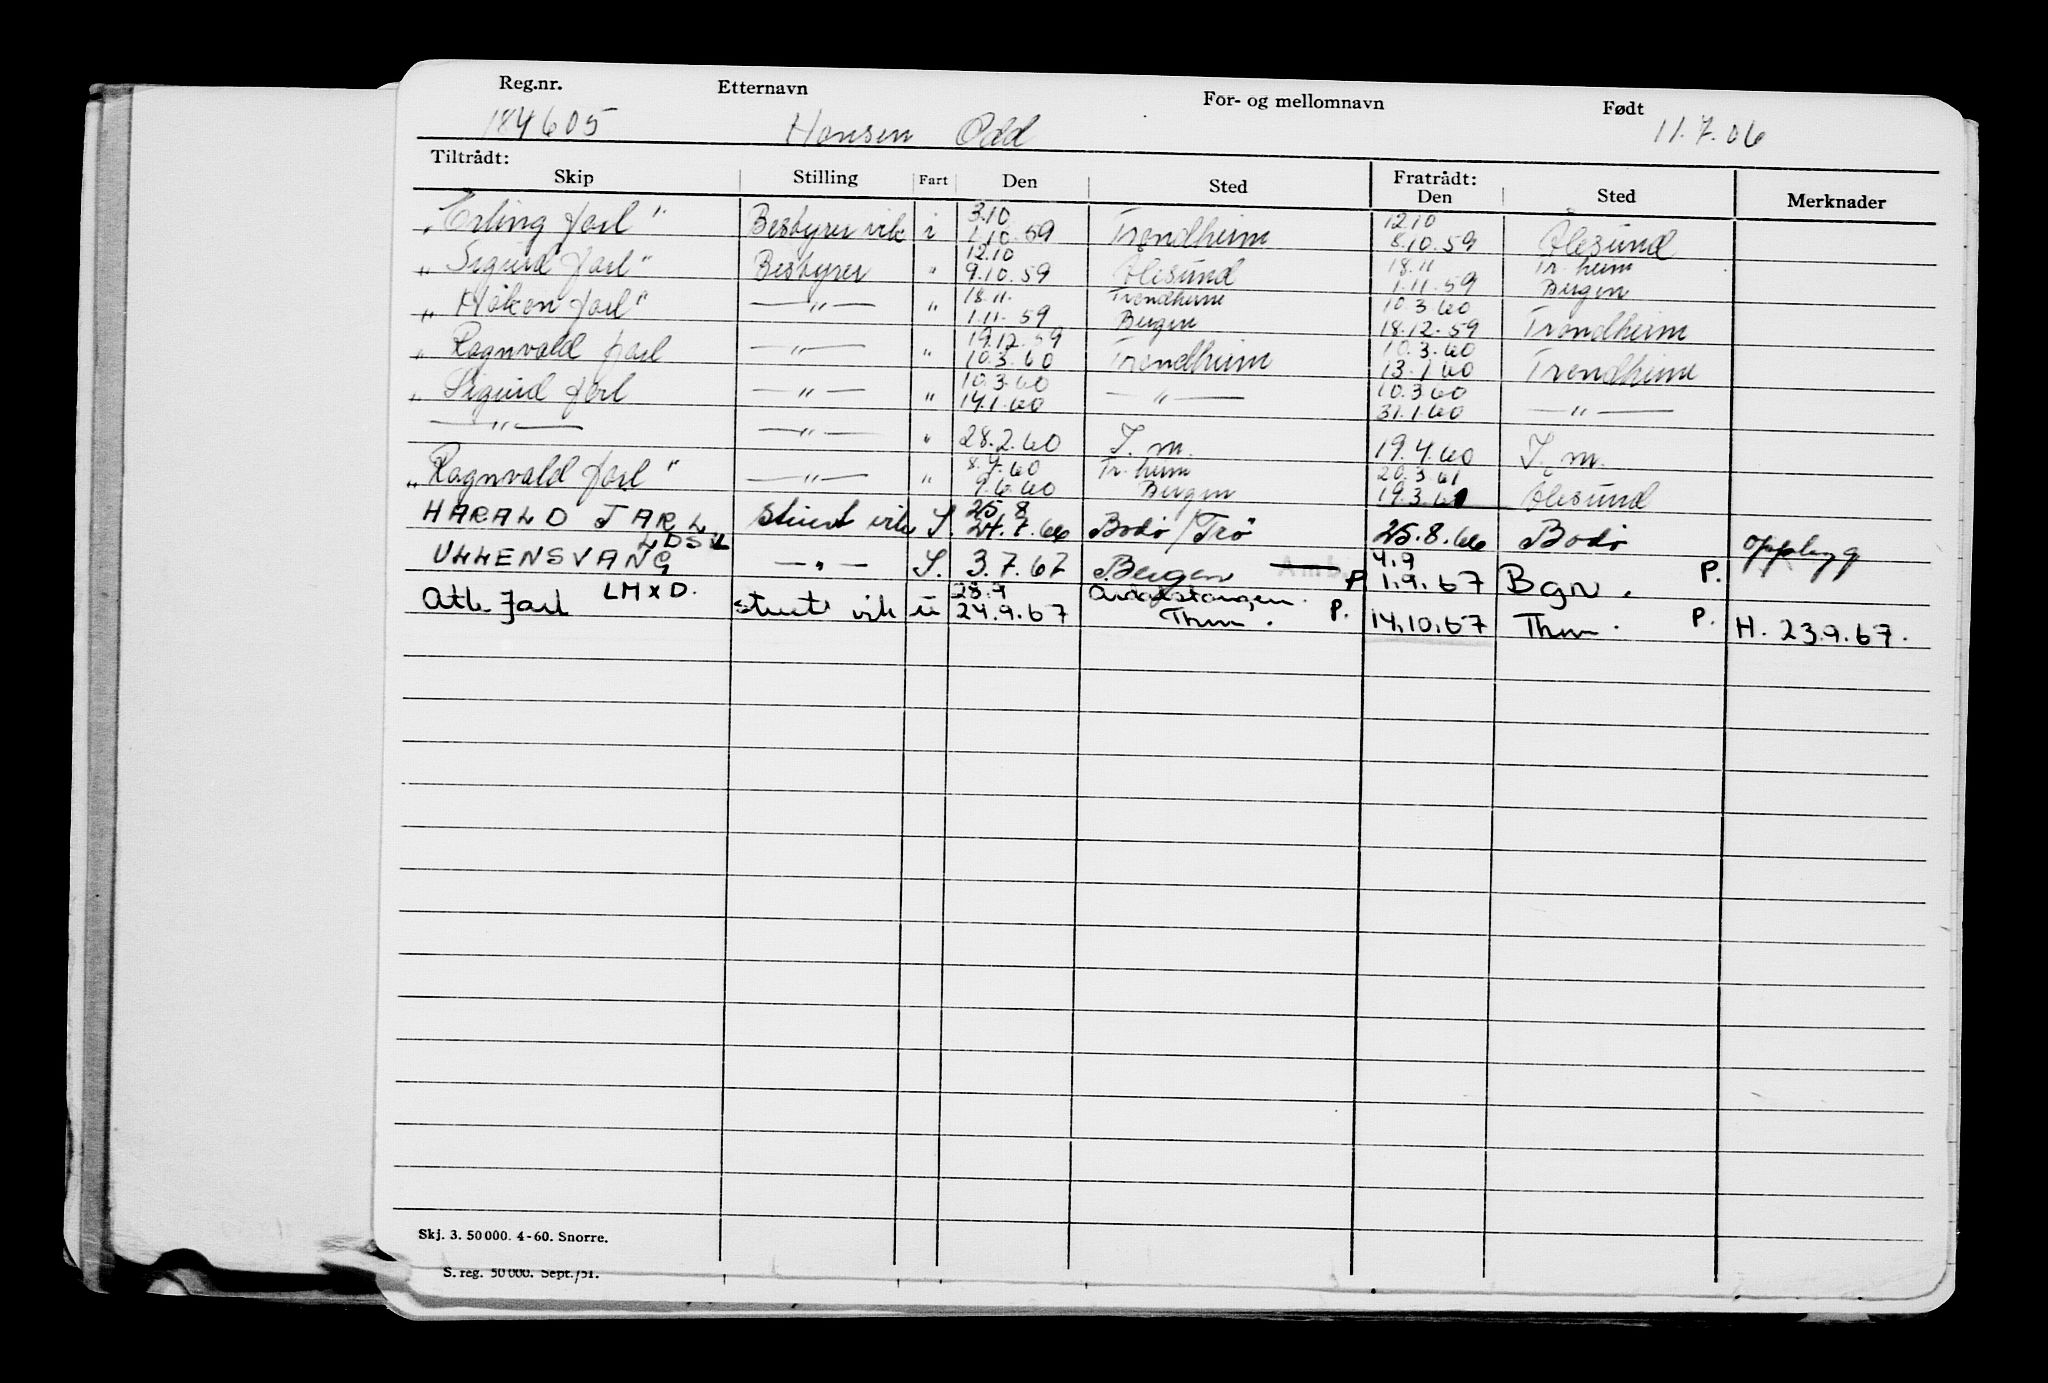 Reg.nr. Etternavn For- og mellomnavn Født
184605 Hansen Odd 11.7.06
Tiltrådt: Fratrådt:
Skip Stilling Fart Den Sted Den Sted Merknader
3.10 12.10
"Erling Jarl" Bestyrer vik i 1.10.59 Trondheim 8.10.59 Ålesund
12.10 18.11 Tr.heim
"Sigurd Jarl" Bestyrer " 9.10.59 Ålesund 1.11.59 Bergen
18.11. Trondheim 10.3.60
"Håkon Jarl" —"— " 1.11.59 Bergen 18.12.59 Trondheim
19.12.59 10.3.60
"Ragnvald Jarl —"— " 10.3.60 Trondheim 13.1.60 Trondheim
10.3.60 10.3.60
"Sigurd Jarl —"— " 14.1.60 —"— 31.1.60 —"—
—"— —"— " 28.2.60 T.m. 19.4.60 T.m.
8.9.60 Tr.heim 20.3.61
"Ragnvald Jarl" —"— " 9.6.60 Bergen 19.3.61 Ålesund
25.8
HARALD JARL LDSL Stuert vik S. 24.7.66 Bodø/Trø 25.8.66 Bodø oppbyg
4.9
ULLENSVANG —"— S. 3.7.67 Bergen P. 1.9.67 Bgn. P.
LMXD. 28.9 Årdalstangen.
Atle Jarl stuert vik u 24.9.67 Thm. P. 14.10.67 Thm. P. H. 23.9.67.
Skj. 3. 50 000. 4-60. Snorre.
S. reg. 50 000. Sept./51.